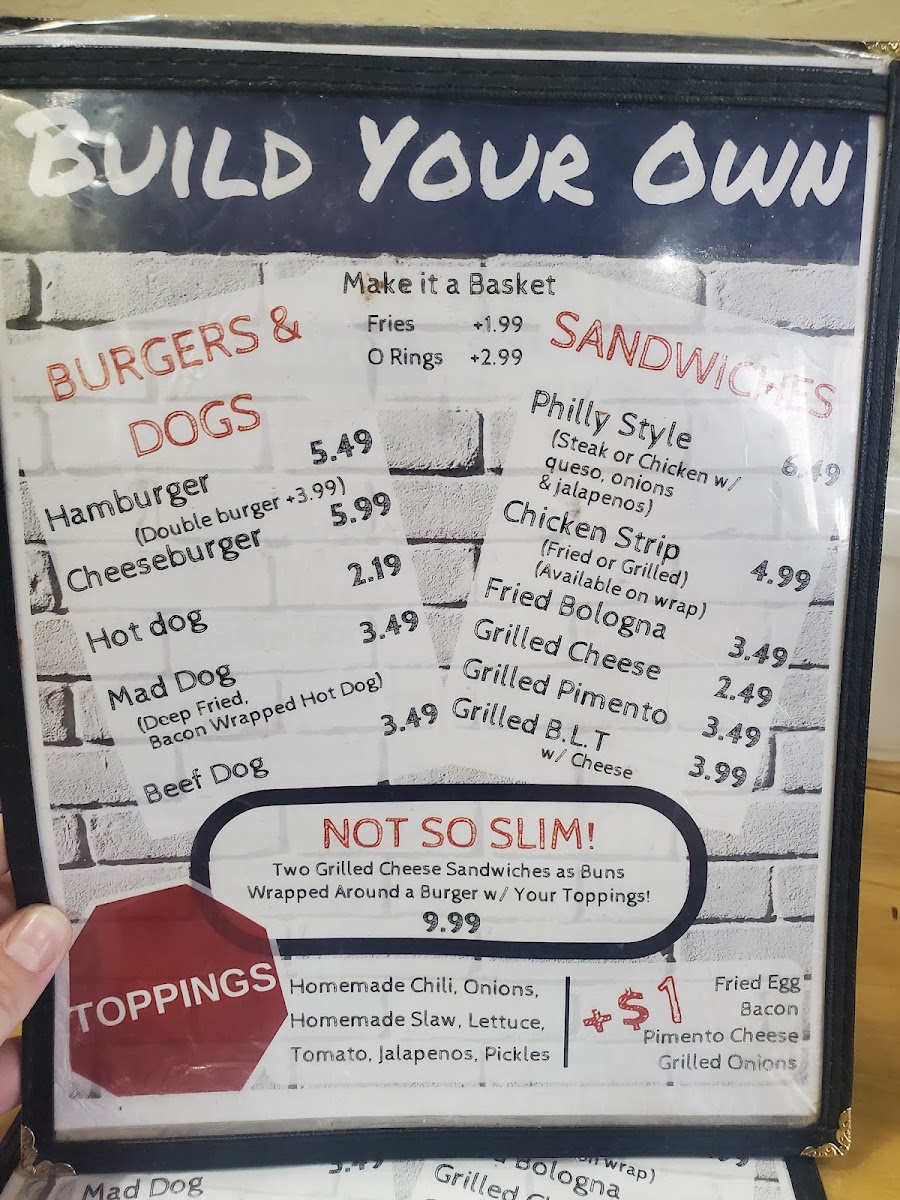 BUILD YOUR OWN
Make it a Basket
Fries +1.99
O Rings +2.99
BURGERS &
DOGS
Hamburger 5.49
(Double burger +3.99)
Cheeseburger 5.99
Hot dog 2.19
Mad Dog 3.49
(Deep Fried,
Bacon Wrapped Hot Dog)
Beef Dog 3.49
SANDWICHES
Philly Style 6.49
(Steak or Chicken w/
queso, onions
& jalapenos)
Chicken Strip 4.99
(Fried or Grilled)
(Available on wrap)
Fried Bologna 3.49
Grilled Cheese 2.49
Grilled Pimento 3.49
Grilled B.L.T 3.99
w/ Cheese
NOT SO SLIM!
Two Grilled Cheese Sandwiches as Buns
Wrapped Around a Burger w/ Your Toppings!
9.99
TOPPINGS
Homemade Chili, Onions,
Homemade Slaw, Lettuce,
Tomato, Jalapenos, Pickles
+$1
Fried Egg
Bacon
Pimento Cheese
Grilled Onions
Mad Dog
wrap)
Bologna
Grilled